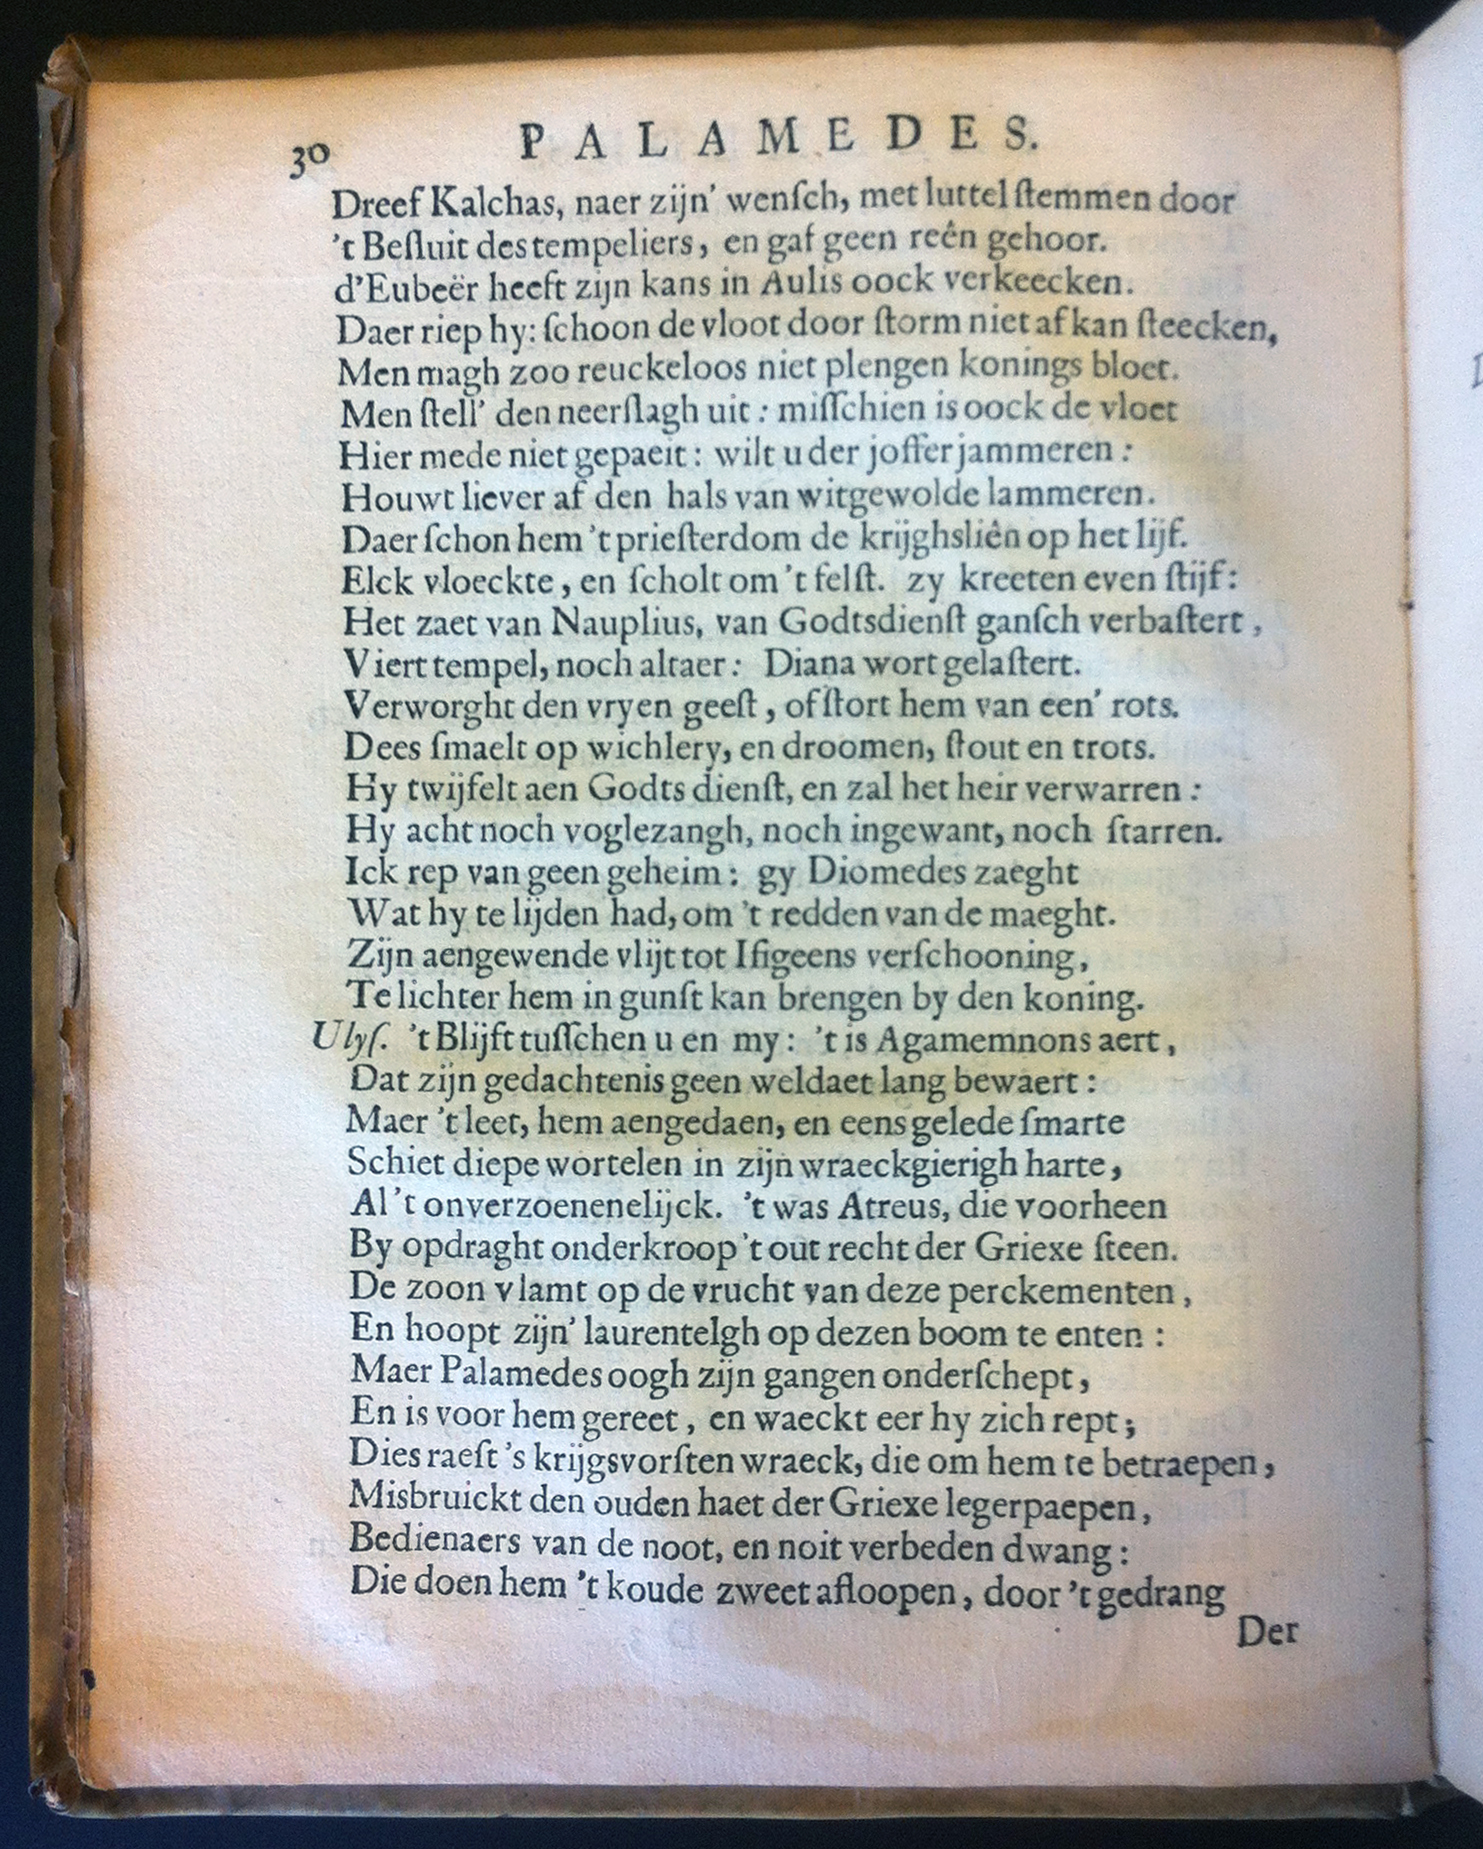 30 PALAMEDES.
Dreef Kalchas, naer zijn' wenſch, met luttel ſtemmen door
't Beſluit des tempeliers, en gaf geen reên gehoor.
d'Eubeër heeft zijn kans in Aulis oock verkeecken.
Daer riep hy: ſchoon de vloot door ſtorm niet af kan ſteecken,
Men magh zoo reuckeloos niet plengen konings bloet.
Men ſtell' den neerſlagh uit: miſſchien is oock de vloet
Hier mede niet gepaeit: wilt u der joffer jammeren:
Houwt liever af den hals van witgewolde lammeren.
Daer ſchon hem 't prieſterdom de krijghsliên op het lijf.
Elck vloeckte, en ſcholt om 't felſt. zy kreeten even ſtijf:
Het zaet van Nauplius, van Godtsdienſt ganſch verbaſtert,
Viert tempel, noch altaer: Diana wort gelaſtert.
Verworght den vryen geeſt, of ſtort hem van een' rots.
Dees ſmaelt op wichlery, en droomen, ſtout en trots.
Hy twijfelt aen Godts dienſt, en zal het heir verwarren:
Hy acht noch voglezangh, noch ingewant, noch ſtarren.
Ick rep van geen geheim: gy Diomedes zaeght
Wat hy te lijden had, om 't redden van de maeght.
Zijn aengewende vlijt tot Ifigeens verſchooning,
Te lichter hem in gunſt kan brengen by den koning.
Ulyſ. 't Blijft tuſſchen u en my: 't is Agamemnons aert,
Dat zijn gedachtenis geen weldaet lang bewaert:
Maer 't leet, hem aengedaen, en eens gelede ſmarte
Schiet diepe wortelen in zijn wraeckgierigh harte,
Al 't onverzoenenelijck. 't was Atreus, die voorheen
By opdraght onderkroop 't out recht der Griexe ſteen.
De zoon vlamt op de vrucht van deze perckementen,
En hoopt zijn' laurentelgh op dezen boom te enten:
Maer Palamedes oogh zijn gangen onderſchept,
En is voor hem gereet, en waeckt eer hy zich rept;
Dies raeſt 's krijgsvorſten wraeck, die om hem te betraepen,
Misbruickt den ouden haet der Griexe legerpaepen,
Bedienaers van de noot, en noit verbeden dwang:
Die doen hem 't koude zweet afloopen, door 't gedrang
Der